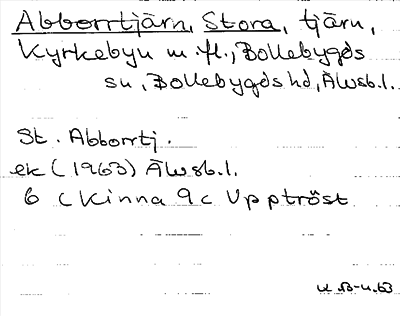 Abborrtjärn, Stora, tjärn,
Kyrkebyn m.fl., Bollebygds
sn, Bollebygds hd, Älvsb.l.
St. Abborrtj.
ek (1963) Älvsb.l.
6 C Kinna 9c Upptröst